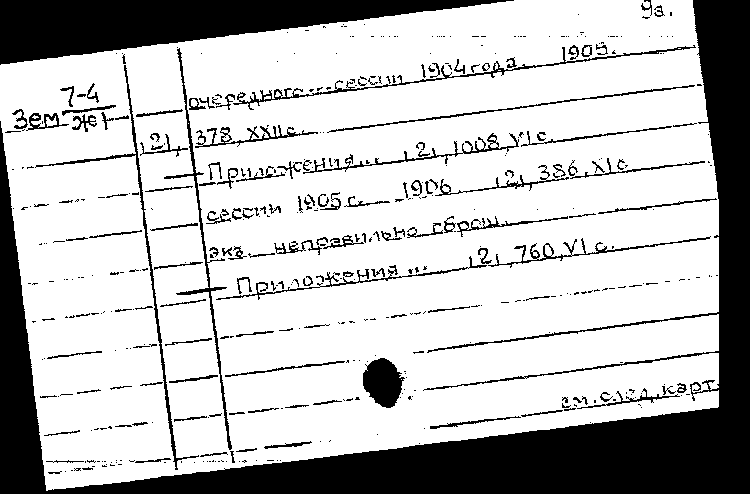 9а.
очередного... сессии 1904 года. 1905.
Зем 7-4
ЭЖ1
, 2 , 378, XXII с.
— Приложения... , 2 , 1008, VI с.
сессии 1905 г. 1906. , 2 , 386, XI с
экз. неправильно сброш.
— Приложения... , 2 , 760, VI с.
см. след. карт.